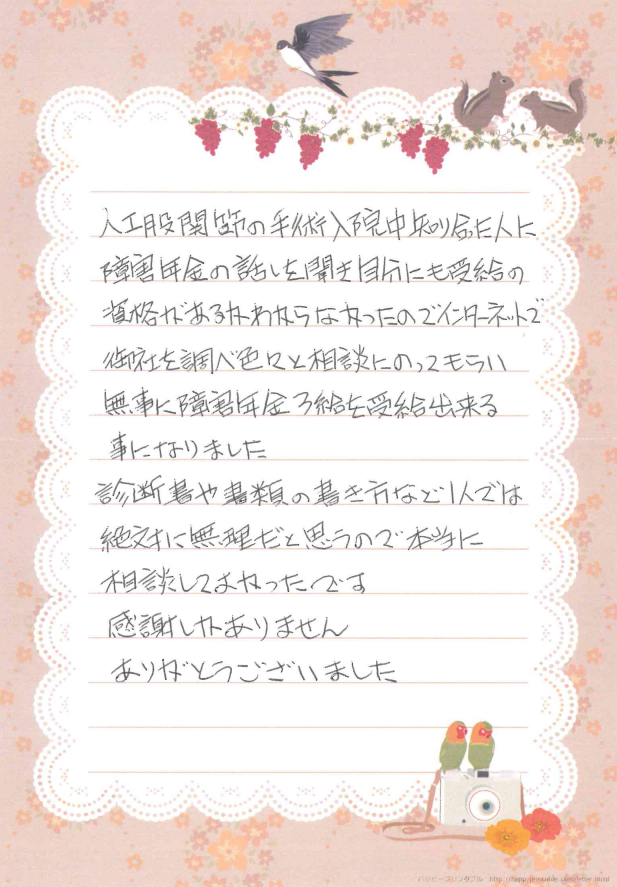 人工股関節の手術入院中知り合た人に
障害年金の話しを聞き自分にも受給の
資格があるかわからなかったのでインターネットで
御社を調べ色々と相談にのってもらい
無事に障害年金3給を受給出来る
事になりました
診断書や書類の書き方など1人では
絶対に無理だと思うので本当に
相談してよかったです
感謝しかありません
ありがとうございました
ハッピープリンタブル